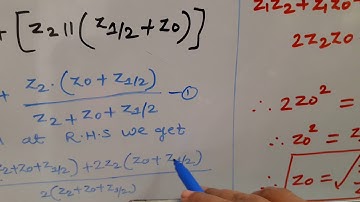 + [Z2 || (Z1/2 + Z0)]
+ Z2 · (Z0 + Z1/2) / Z2 + Z0 + Z1/2 — ①
at R.H.S we get
Z2 + Z0 + Z1/2) + 2Z2 (Z0 + Z1/2) / 2(Z2 + Z0 + Z1/2)
Z1Z2 + Z1Z0
2Z2Z0
∴ 2Z0² =
∴ Z0² =
∴ Z0 = √